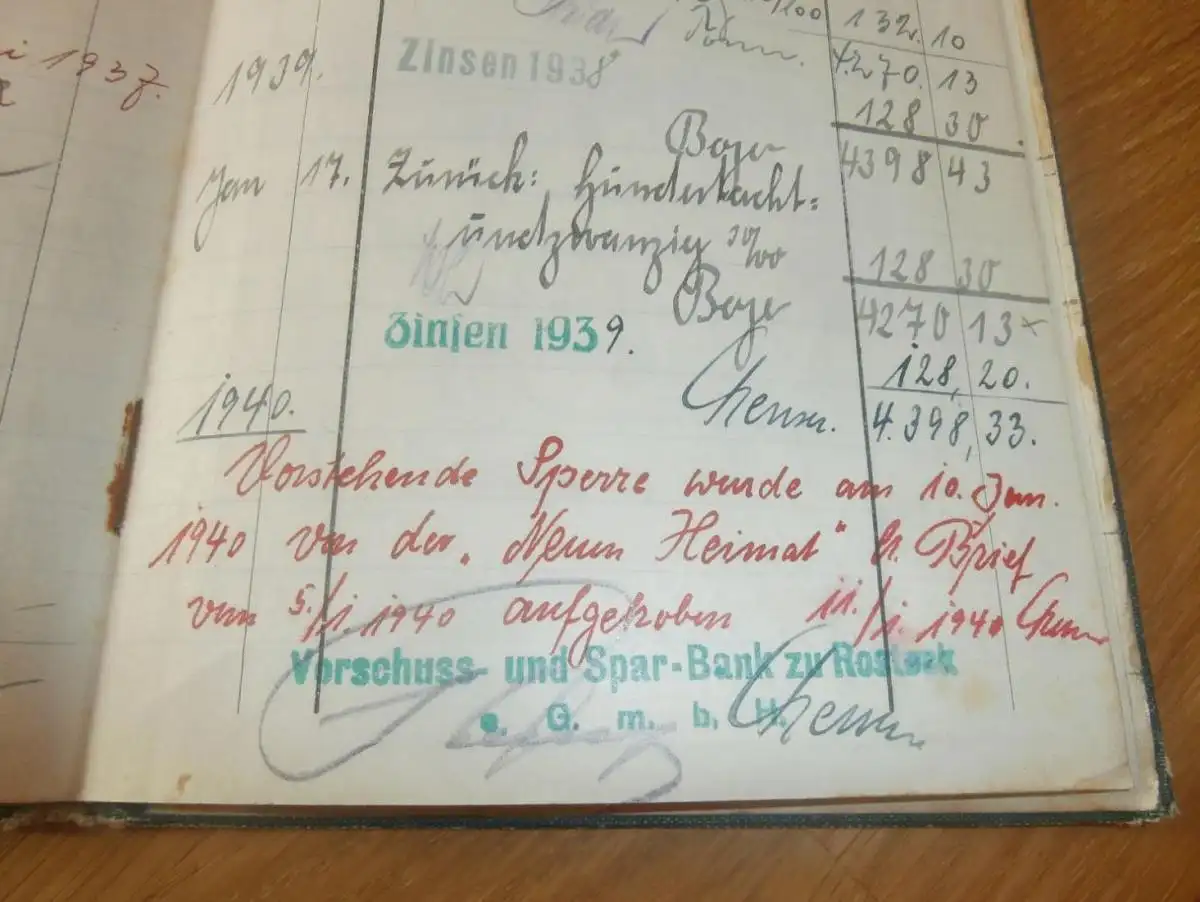 132. 10
i 1937.
Zinsen 1938
4270. 13
1939.
128 30
Boje
4398 43
Jan 17. Zurück: Hundertacht=
undzwanzig 30/100
128 30
Boje
4270 13 ×
Zinsen 1939.
128, 20.
1940.
4.398, 33.
Vorstehende Sperre wurde am 10. Jan.
1940 von der „Neuen Heimat" lt. Brief
vom 5./1. 1940 aufgehoben 11./1. 1940
Vorschuss- und Spar-Bank zu Rostock
e. G. m. b. H.